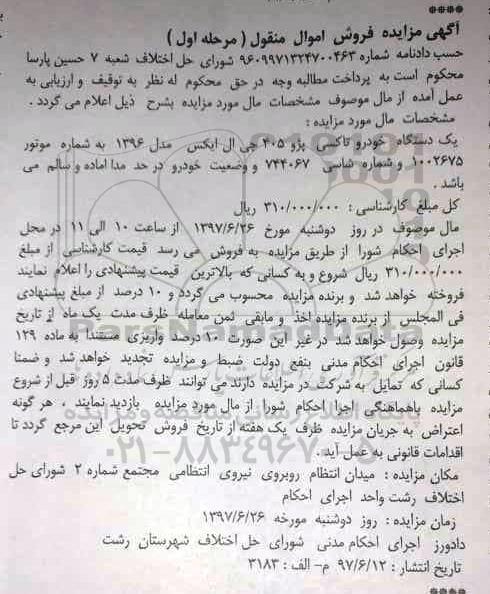 ****
آگهی مزایده فروش اموال منقول ( مرحله اول )
حسب دادنامه شماره ۹۶۰۹۹۷۱۳۲۴۷۰۰۴۶۳ شورای حل اختلاف شعبه ۷ حسین پارسا
محکوم است به پرداخت مطالبه وجه در حق محکوم له نظر به توقیف و ارزیابی به
عمل آمده از مال موصوف مشخصات مال مورد مزایده بشرح ذیل اعلام می گردد .
مشخصات مال مورد مزایده :
یک دستگاه خودرو تاکسی پژو ۴۰۵ جی ال ایکس مدل ۱۳۹۶ به شماره موتور
۱۰۰۲۶۷۵ و شماره شاسی ۷۴۴۰۶۷ و وضعیت خودرو در حد مدا اماده و سالم می
باشد .
کل مبلغ کارشناسی : ۳۱۰/۰۰۰/۰۰۰ ریال
مال موصوف در روز دوشنبه مورخ ۱۳۹۷/۶/۲۶ از ساعت ۱۰ الی ۱۱ در محل
اجرای احکام شورا از طریق مزایده به فروش می رسد قیمت کارشناسی از مبلغ
۳۱۰/۰۰۰/۰۰۰ ریال شروع و به کسانی که بالاترین قیمت پیشنهادی را اعلام نمایند
فروخته خواهد شد و برنده مزایده محسوب می گردد و ۱۰ درصد از مبلغ پیشنهادی
فی المجلس از برنده مزایده اخذ و مابقی ثمن معامله ظرف مدت یک ماه از تاریخ
مزایده وصول خواهد شد در غیر این صورت ۱۰ درصد واریزی مستندا به ماده ۱۲۹
قانون اجرای احکام مدنی بنفع دولت ضبط و مزایده تجدید خواهد شد و ضمنا
کسانی که تمایل به شرکت در مزایده دارند می توانند ظرف مدت ۵ روز قبل از شروع
مزایده باهماهنگی اجرا احکام شورا از مال مورد مزایده بازدید نمایند ، هر گونه
اعتراض به جریان مزایده ظرف یک هفته از تاریخ فروش تحویل این مرجع گردد تا
اقدامات قانونی به عمل آید .
مکان مزایده : میدان انتظام روبروی نیروی انتظامی مجتمع شماره ۲ شورای حل
اختلاف رشت واحد اجرای احکام
زمان مزایده : روز دوشنبه مورخه ۱۳۹۷/۶/۲۶
دادورز اجرای احکام مدنی شورای حل اختلاف شهرستان رشت
تاریخ انتشار : ۹۷/۶/۱۲ م- الف : ۳۱۸۳
****
ParsNamadData
۰۲۱-۸۸۳۴۹۶۷۰-۵